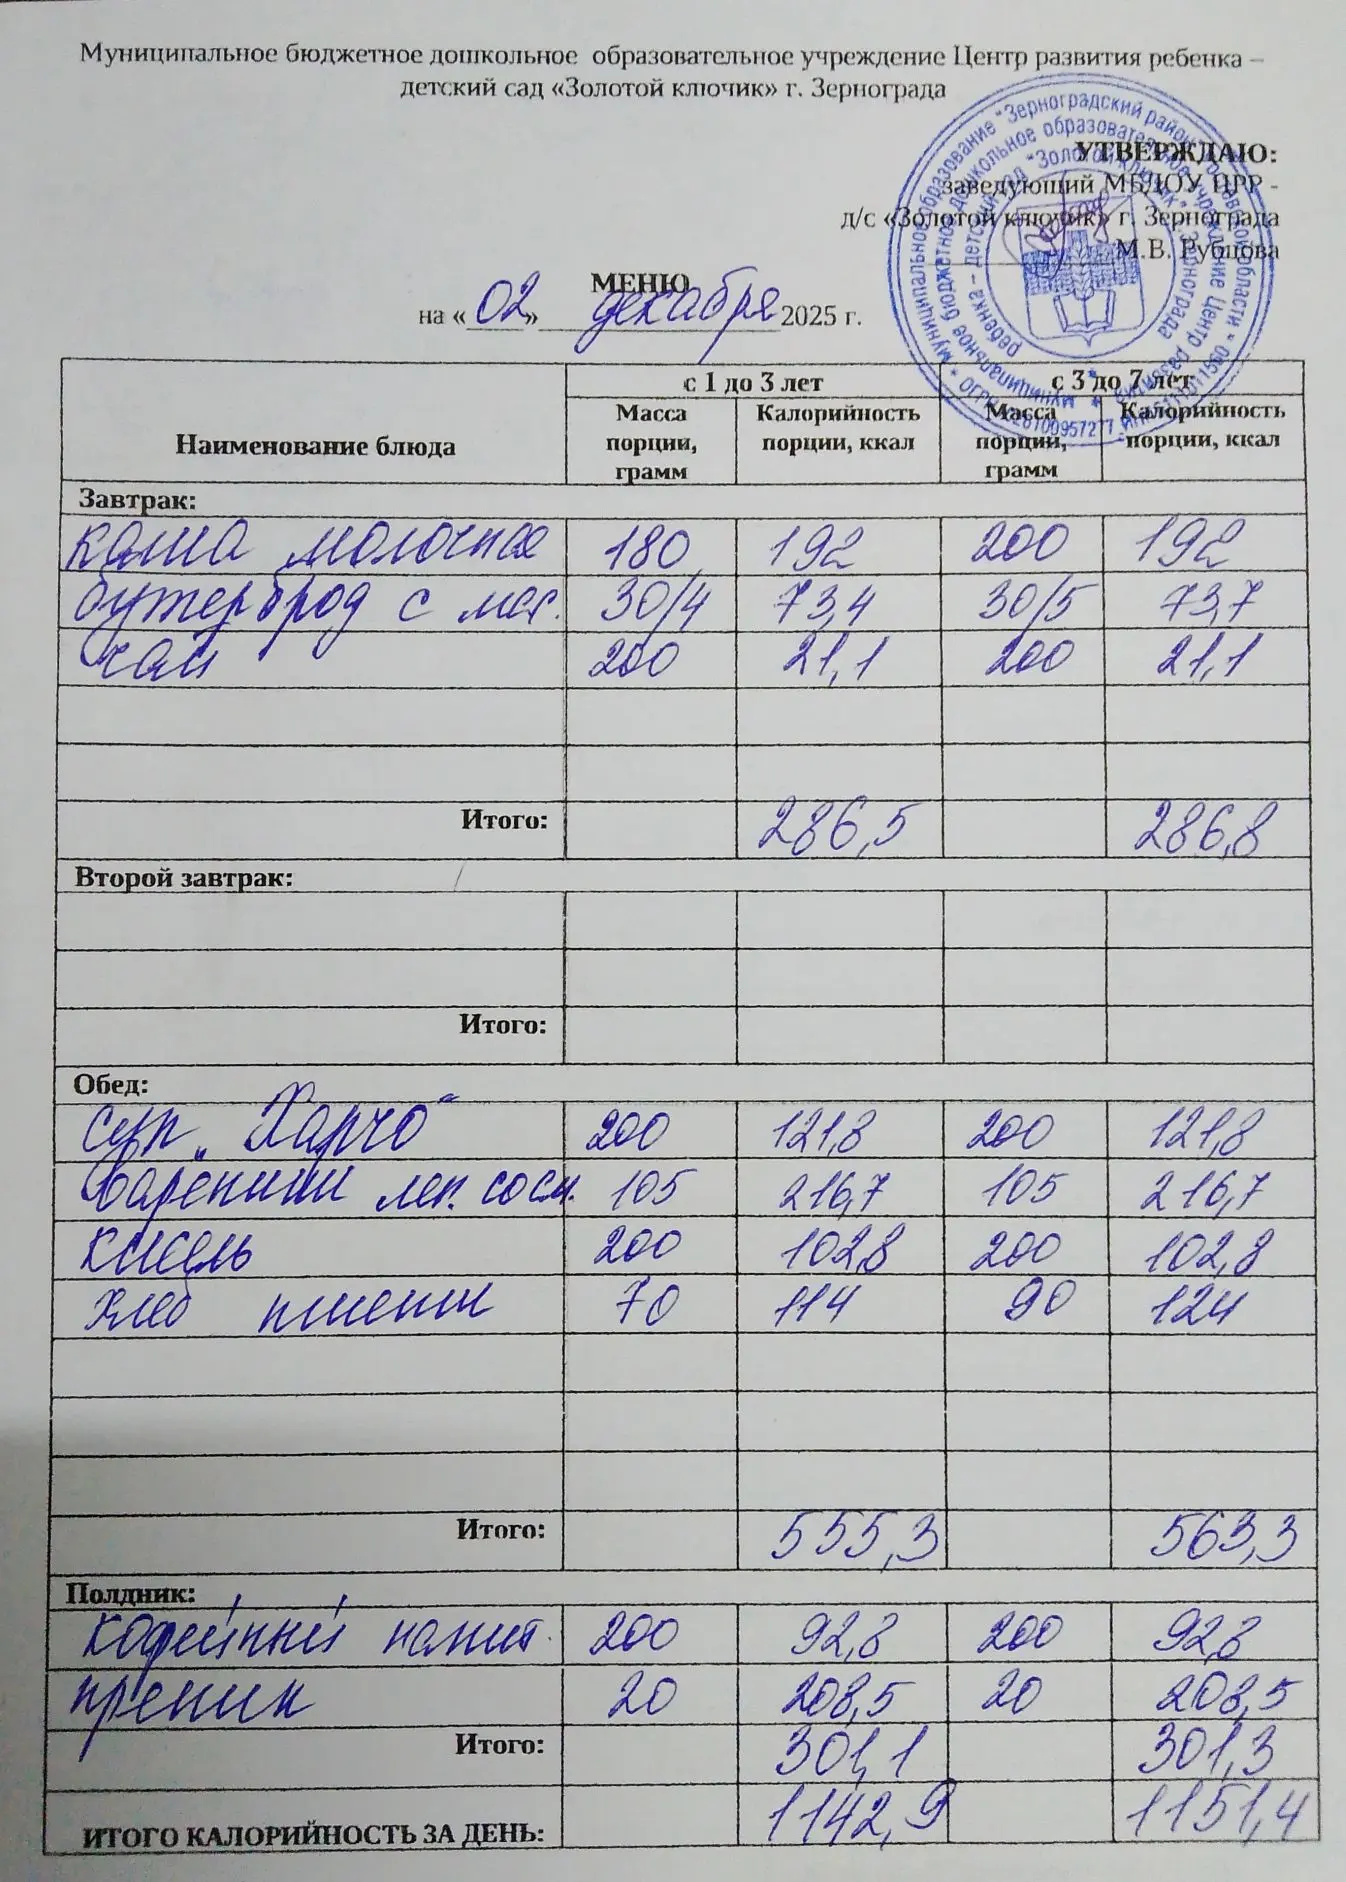 Муниципальное бюджетное дошкольное образовательное учреждение Центр развития ребенка –
детский сад «Золотой ключик» г. Зернограда
УТВЕРЖДАЮ:
заведующий МБДОУ ЦРР -
д/с «Золотой ключик» г. Зернограда
М.В. Рубцова
МЕНЮ
на «02» декабря 2025 г.
Наименование блюда с 1 до 3 лет с 3 до 7 лет
Масса порции, грамм Калорийность порции, ккал Масса порции, грамм Калорийность порции, ккал
Завтрак:
каша молочная 180 192 200 192
бутерброд с мас. 30/4 73,4 30/5 73,7
чай 200 21,1 200 21,1
Итого: 286,5 286,8
Второй завтрак:
Итого:
Обед:
суп „Харчо" 200 121,8 200 121,8
вареники лен. сосм. 105 216,7 105 216,7
кисель 200 102,8 200 102,8
хлеб пшени 70 114 90 124
Итого: 555,3 563,3
Полдник:
кофейный напит. 200 92,8 200 92,8
преник 20 208,5 20 208,5
Итого: 301,1 301,3
ИТОГО КАЛОРИЙНОСТЬ ЗА ДЕНЬ: 1142,9 1151,4